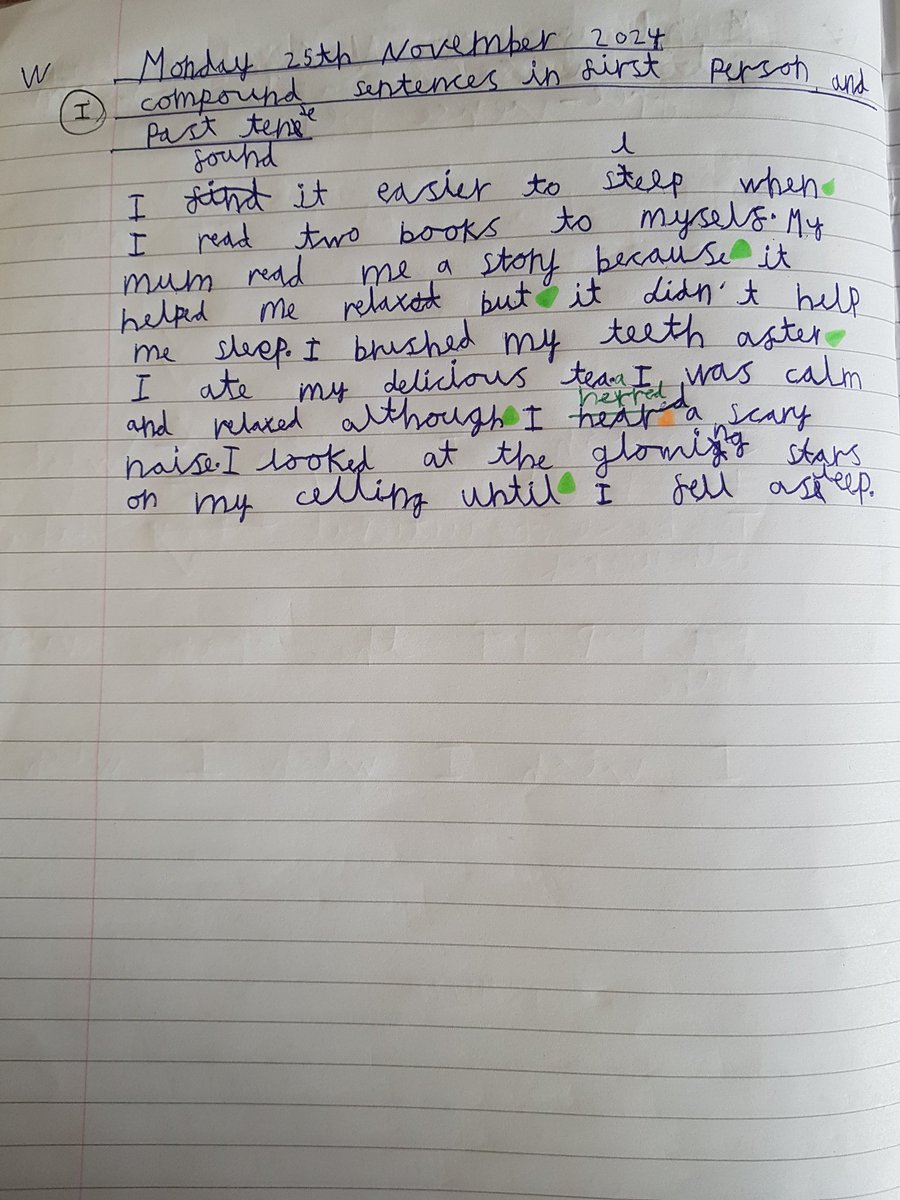 W Monday 25th November 2024
I compound sentences in first person and
Past tense
found
I find it easier to sleep when
I read two books to myself. My
mum read me a story because it
helped me relaxed but it didn't help
me sleep. I brushed my teeth after
I ate my delicious tea. I was calm
herred
and relaxed although I heard a scary
noise. I looked at the glowing stars
on my celling until I fell asleep.